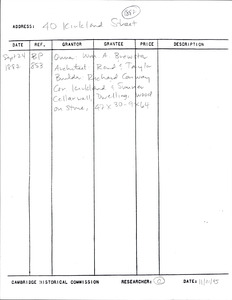 1882
ADDRESS: 40 Kirkland Street
DATE REF. GRANTOR GRANTEE PRICE DESCRIPTION
Sept 24 BP Owner Wm A. Brewster
1882 853 Architect Rand & Taylor
Builder Richard Conway
Cor Kirkland & Sumner
Cellar wall, Dwelling, wood
on stone, 47 x 30.9 x 64
CAMBRIDGE HISTORICAL COMMISSION RESEARCHER: DATE: